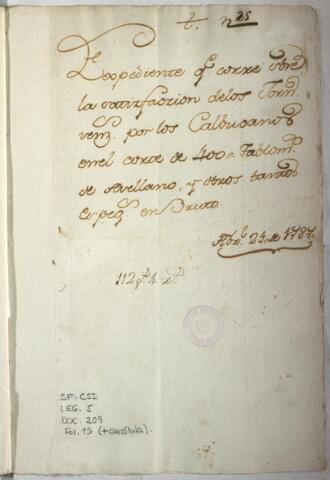 n 25
Expediente q.e corre sobre
la satisfaccion delos Jorn.s
venz.s por los Calbucanos
en el corte de 400 Tablon.s
de Avellano, y otros tantos
en Bruto.
Abr.l 25, de 1787.
1787
SF-CSI
LEG. 5
DOC. 209
Fol. 15 (+ carátula).